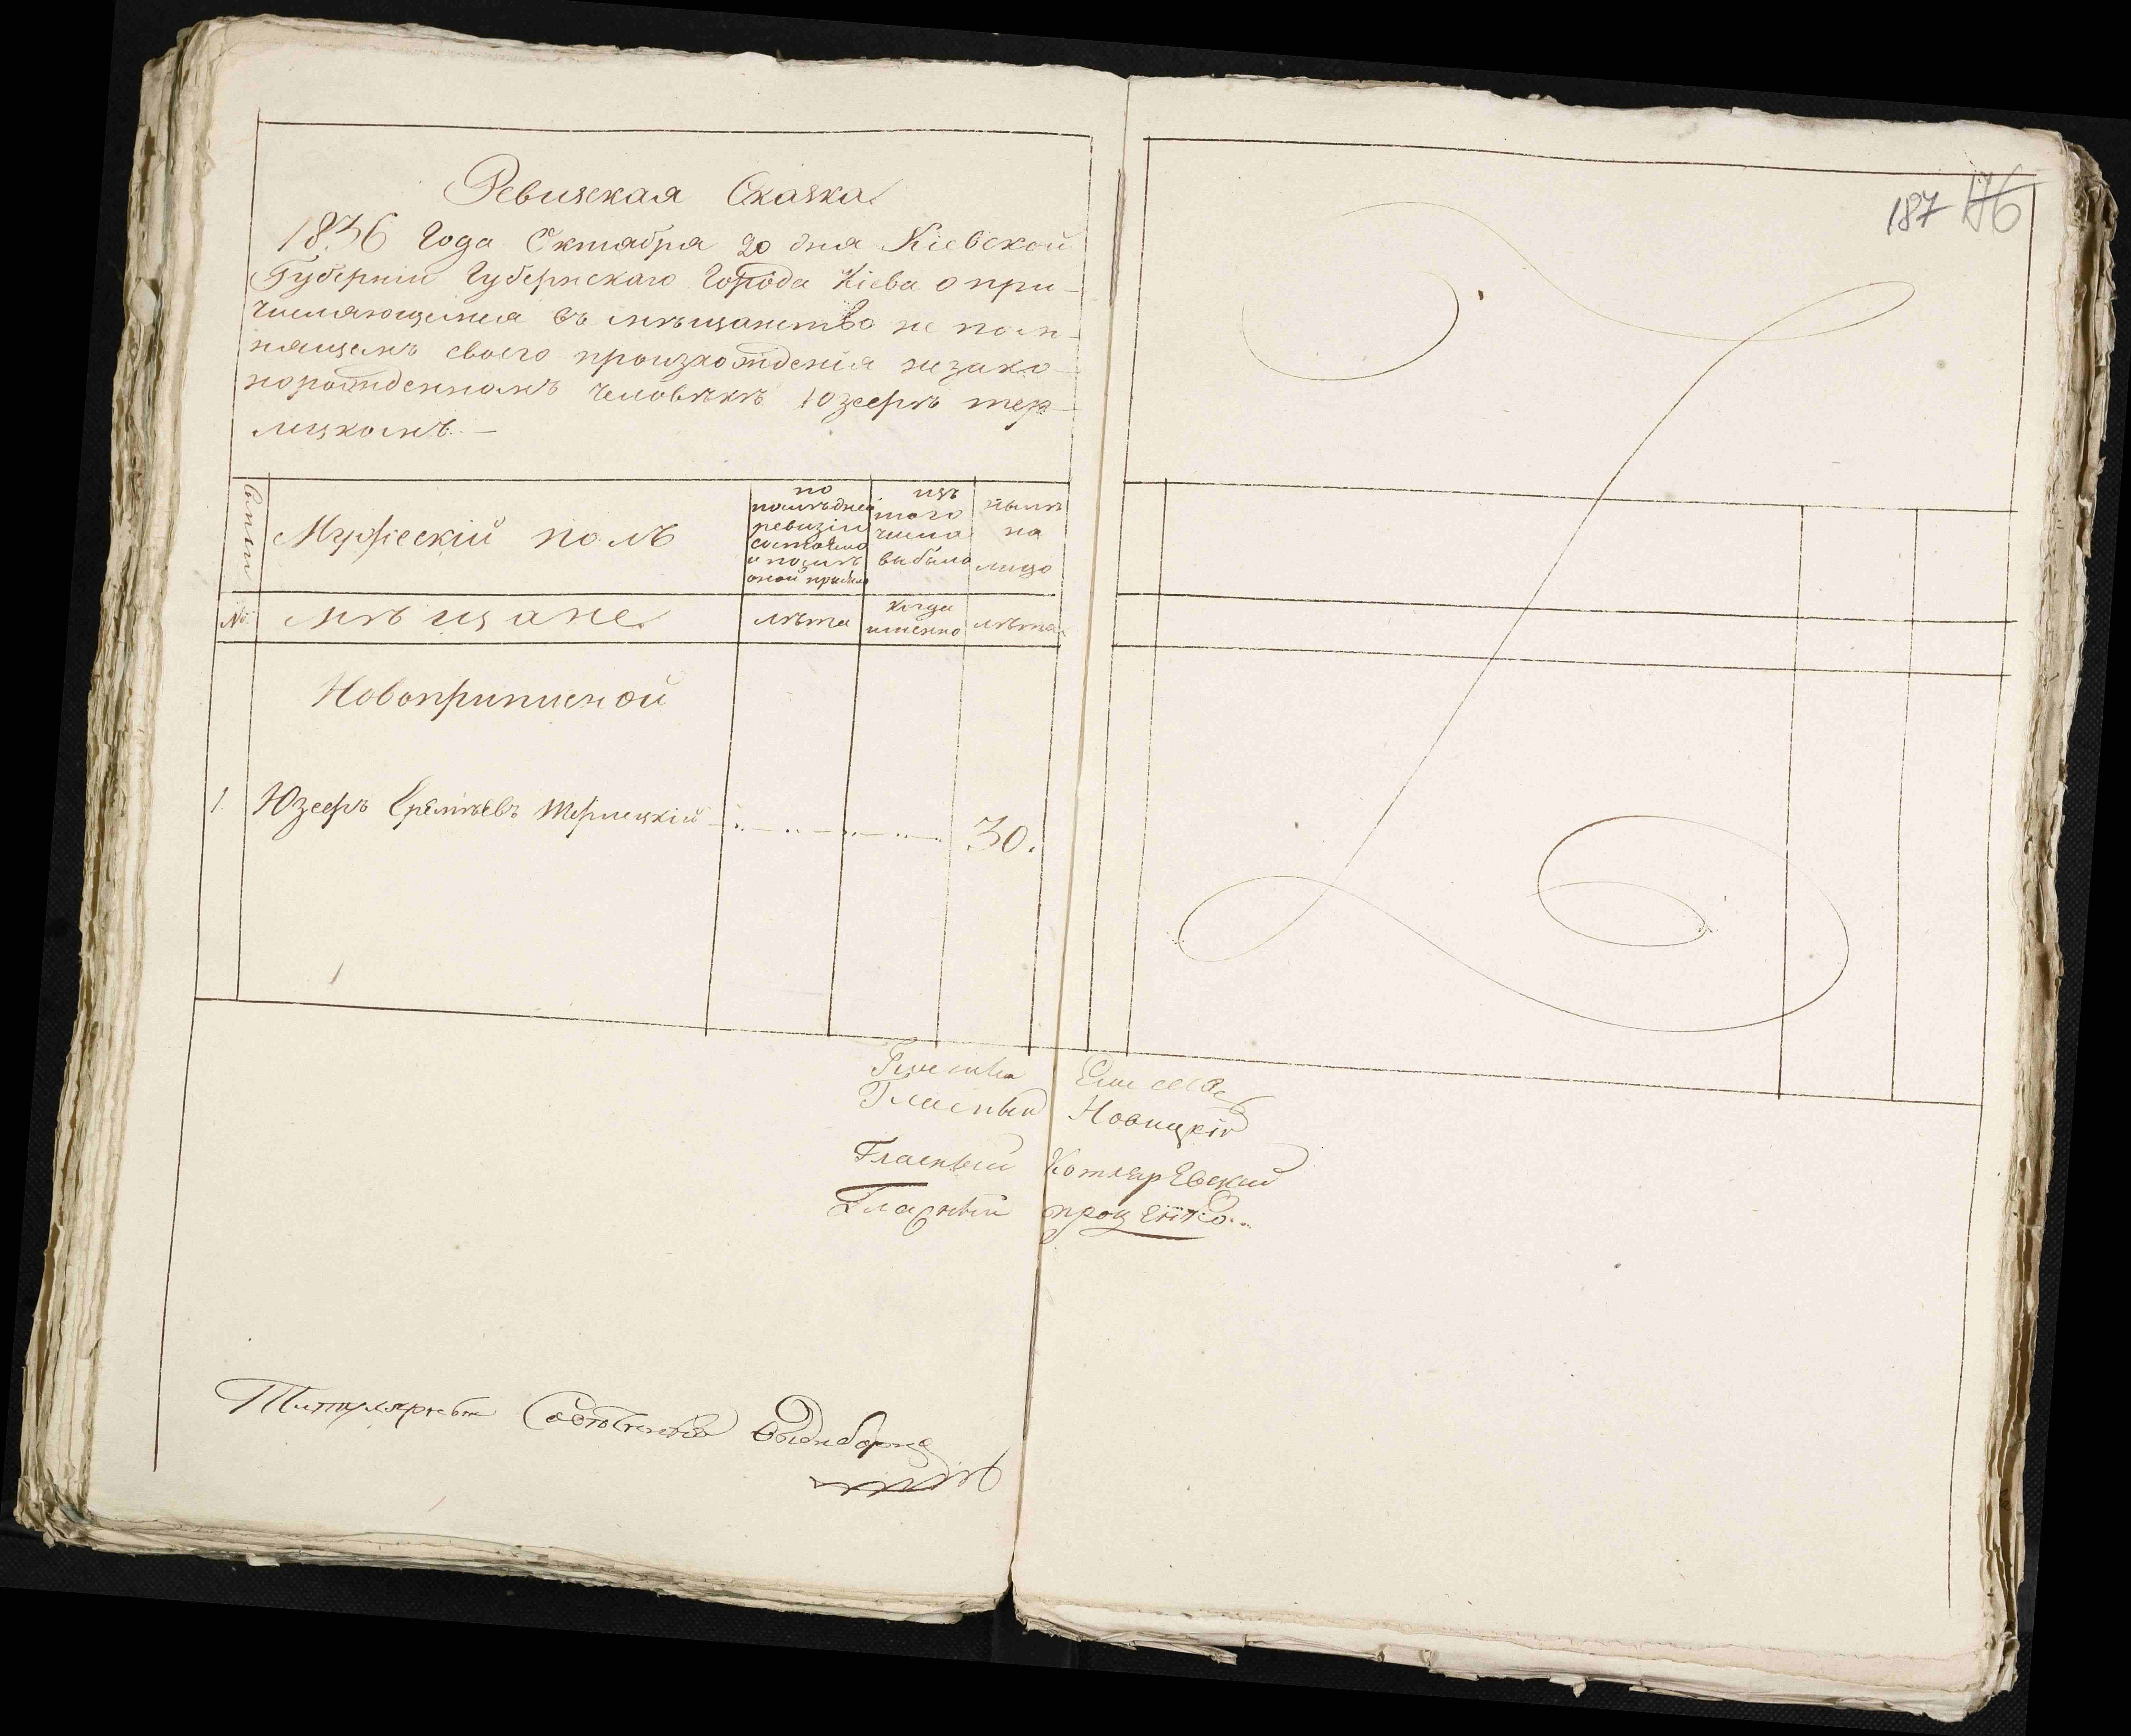 187 176
Ревизская Сказка
1836 Года Октабра 20 дня Кіевской
Губерніи Губернскаго Города Кіева о при-
числяющемся въ мѣщанство не пом-
нящемъ своего произхожденія незако-
норожденномъ человѣкѣ Юзефѣ тер-
лецкомъ. —
Семьи
Мужескій полъ
по последней ревизіи состояло и послѣ оной прибыло
изъ того числа выбыло
нынѣ на лицо
№.
мѣщане
лѣта
когда именно
лѣта
Новоприписной
1. Юзефъ Терлецкій 30.
1
Гласный Новицкій
Гласный Котляревский
Гласный проценко..
Титулярный Советникъ